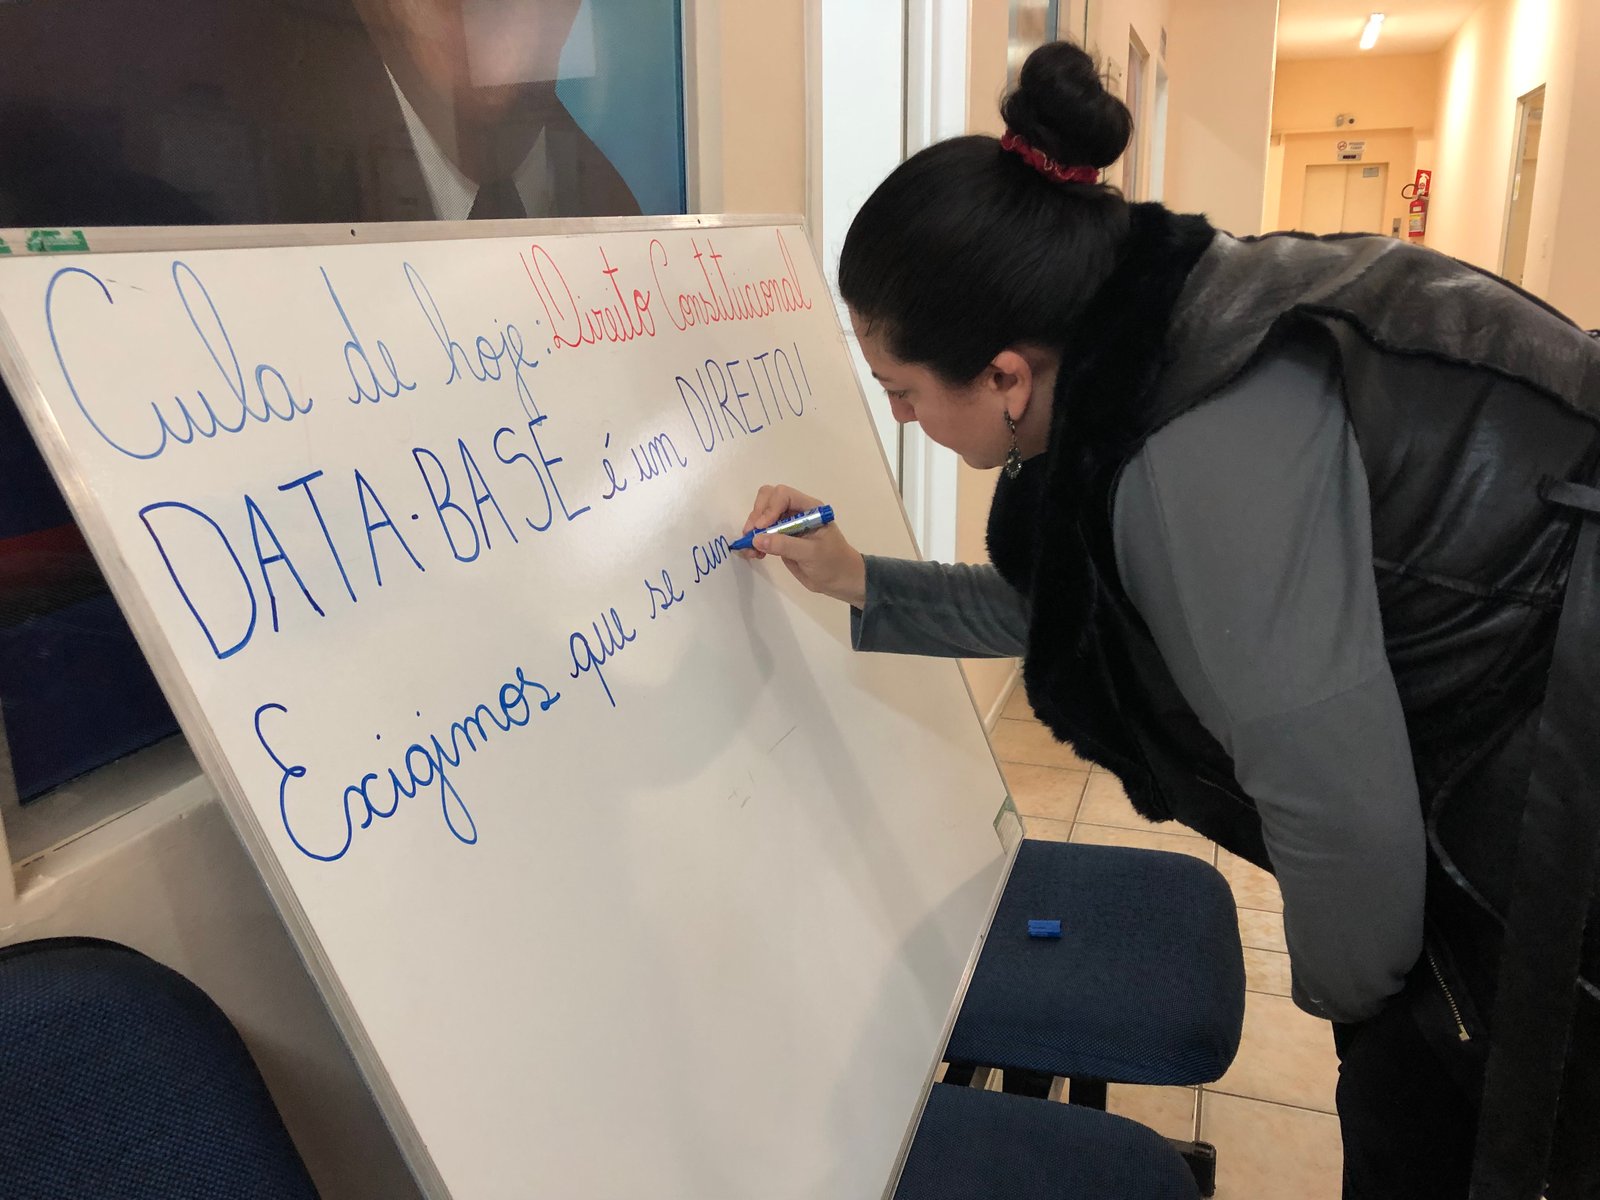 Aula de hoje: Direito Constitucional
DATA-BASE é um DIREITO!
Exigimos que se cum